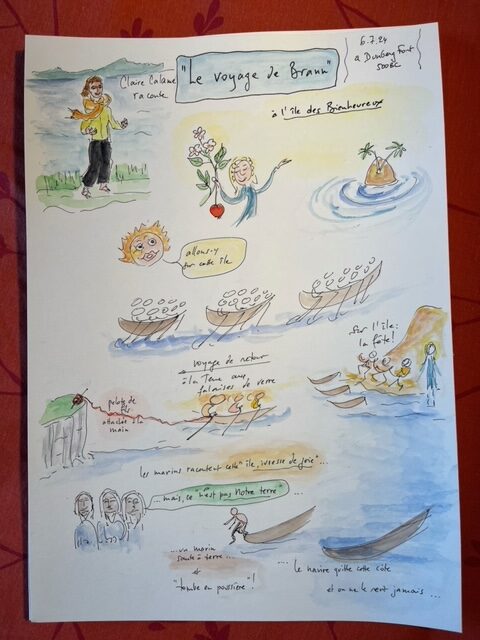 Claire Calame
raconte
"Le voyage de Brann"
6.7.24
a Dunbeg Fort
500BC
à l'île des Bienheureux
allons-y
sur cette île
sur l'île:
la fête!
voyage de retour
à la Terre aux
falaises de verre
pelote de
fil
attachée à la
main
les marins racontent cette "île, ivresse de joie"...
...mais, ce "n'est pas notre terre" ...
...un marin
saute à terre...
et
"tombe en poussière"!
... le navire quitte cette côte
et on ne le revit jamais ....